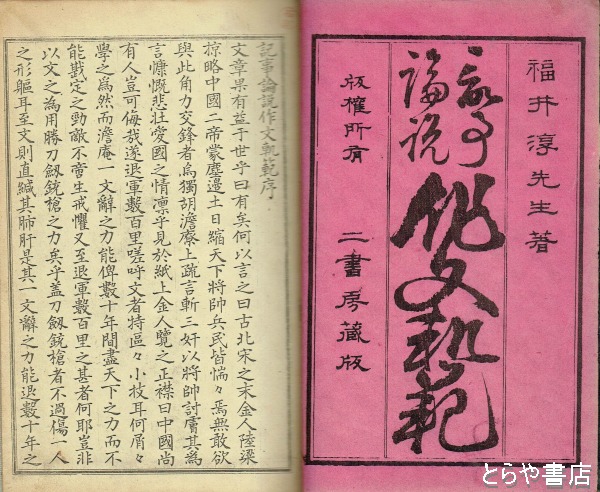 福井淳先生著
記事
論説
作文軌範
版權所有
二書房藏版
記事論說作文軌範序
文章果有益于世乎曰有矣何以言之曰古北宋之末金人陸梁
掠略中國二帝蒙塵邊土日縮天下將帥兵民皆惴々焉無敢欲
與此角力交鋒者焉獨胡澹庵上疏言斬三奸以將帥討虜其為
言慷慨悲壯愛國之情凜乎見於紙上金人覽之正襟曰中國尚
有人豈可侮哉遂退軍數百里嗟呼文者特區々小枝耳何屑々
學之爲然而澹庵一文辭之力能俾數十年間盡天下之力而不
能戡定之勁敵不啻生戒懼又至退軍數百里之甚者何耶豈非
以文之為用勝刀劔銃槍之力兵乎蓋刀劔銃槍者不過傷一人
之形軀耳至文則直緘其肺肝是其一文辭之力能退數十年之
とらや書店